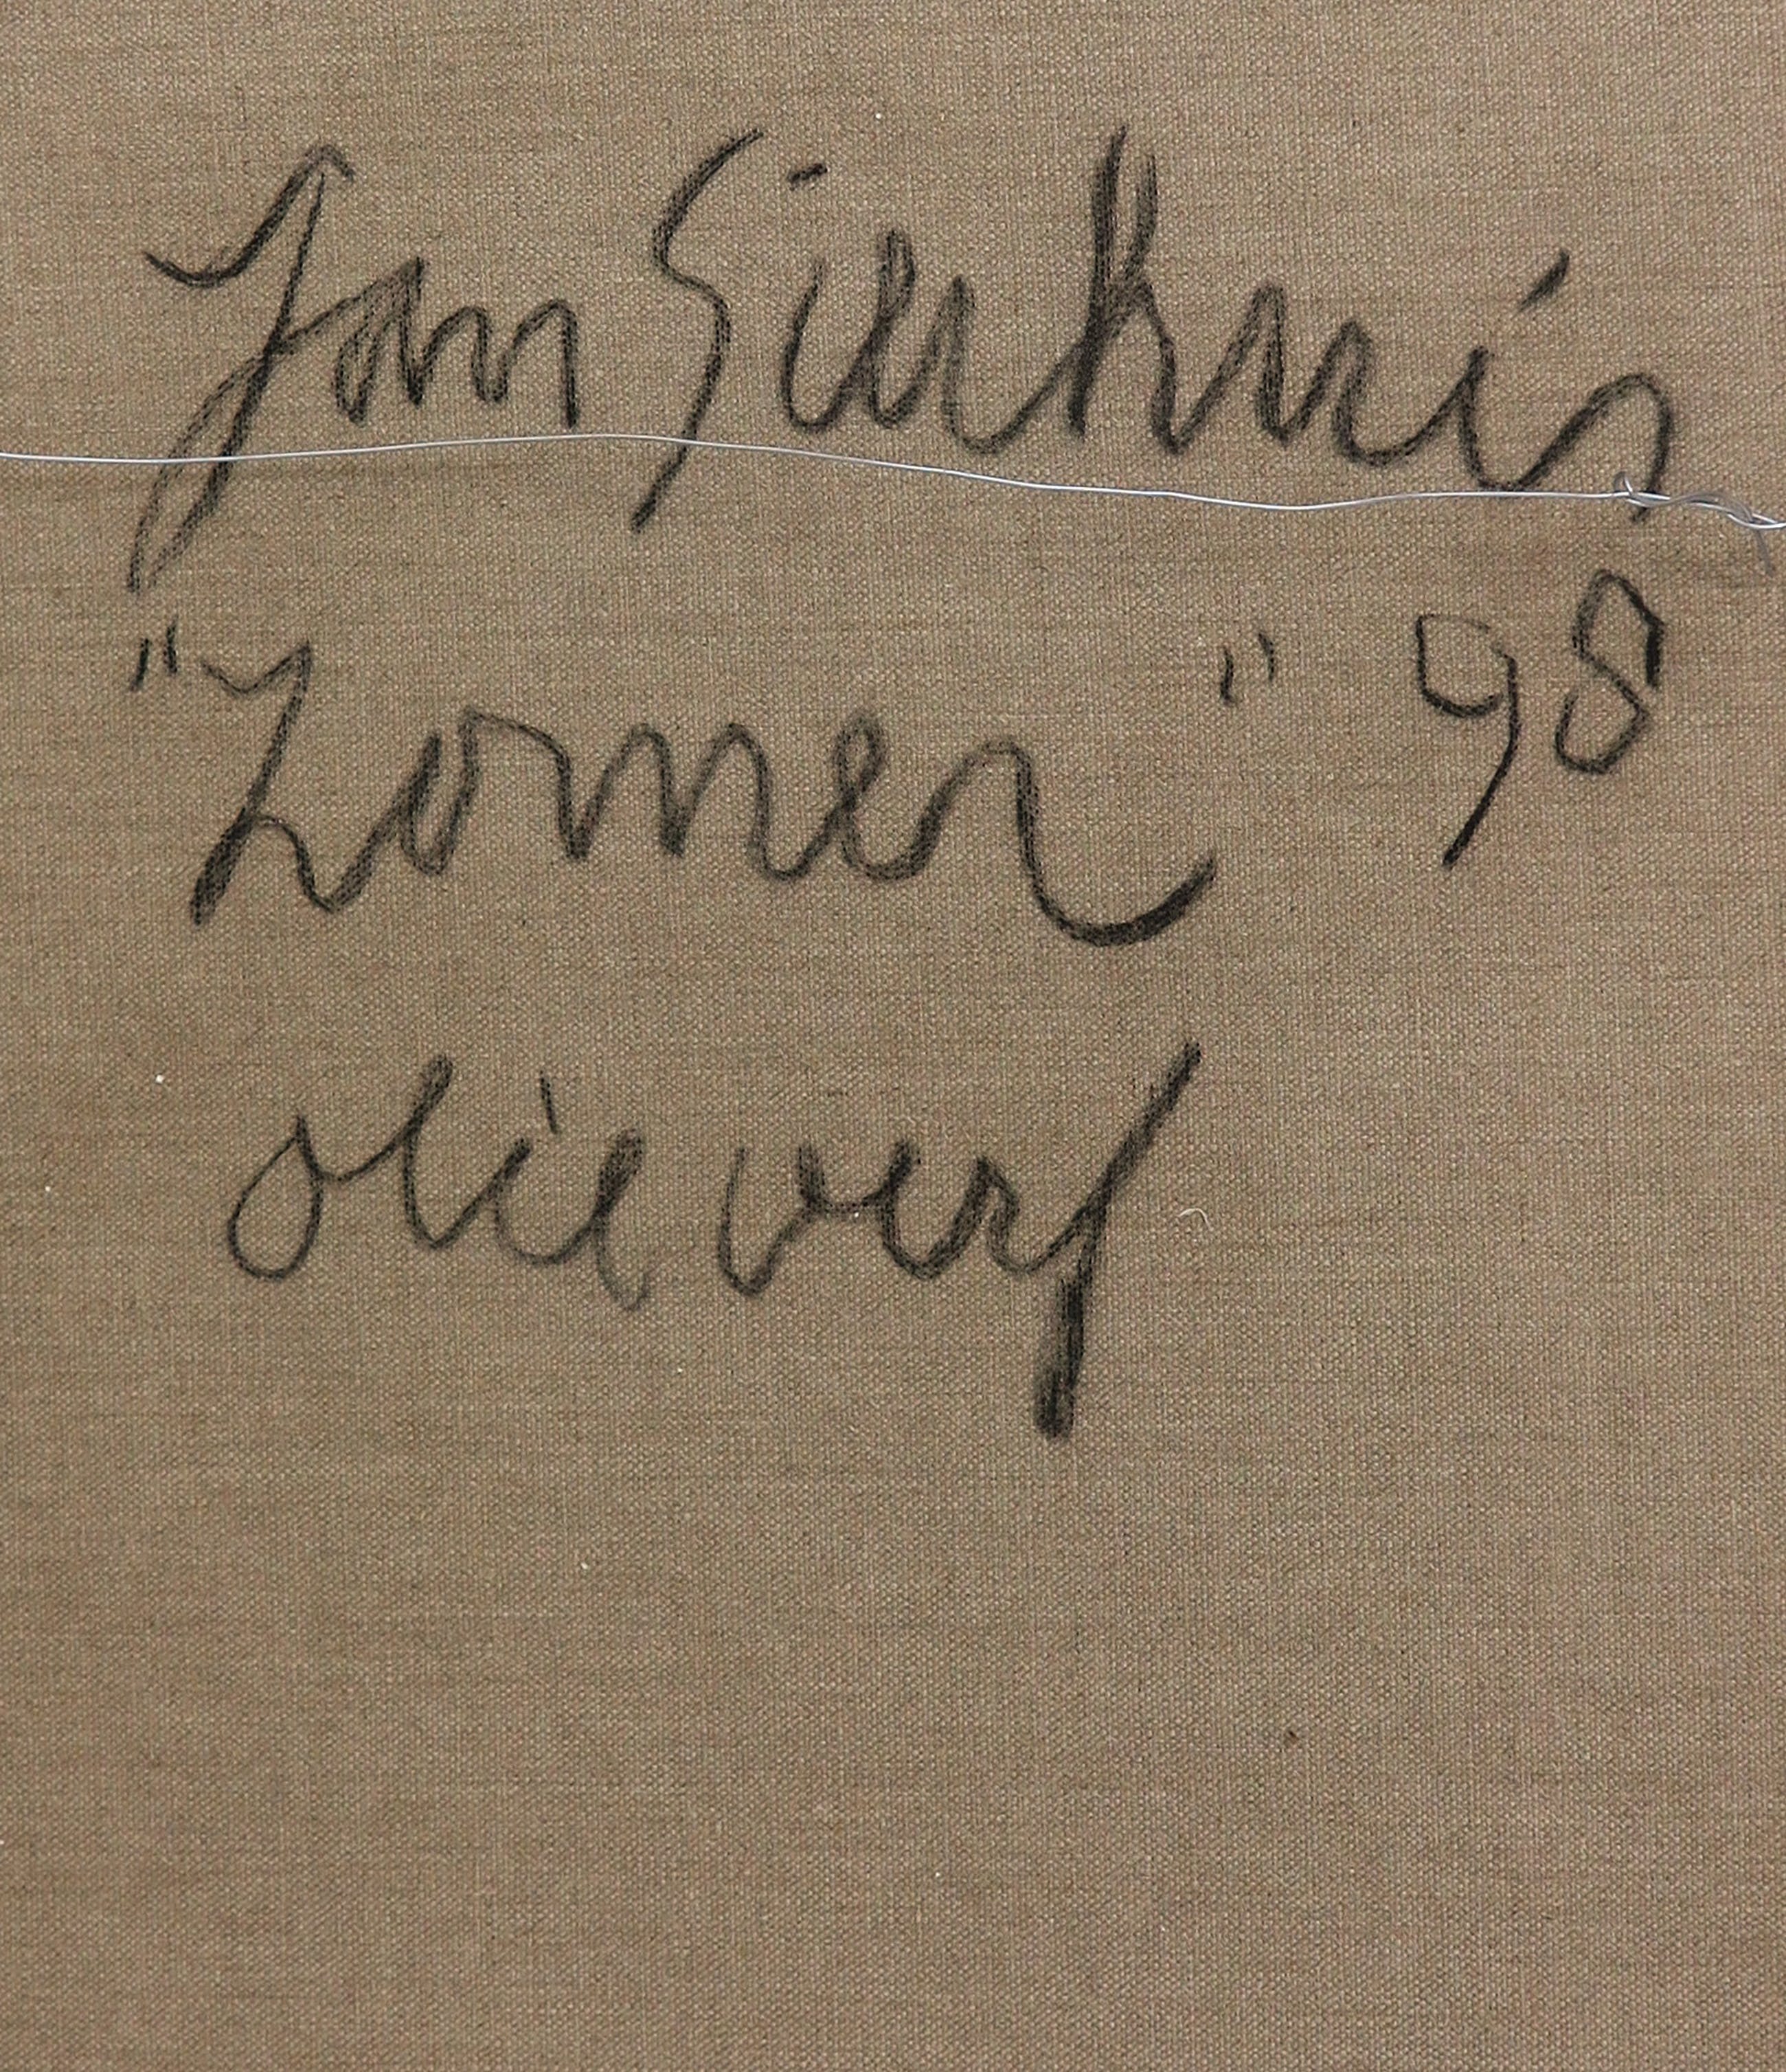 Jan Sierhuis
"Zomer" 98
olie verf